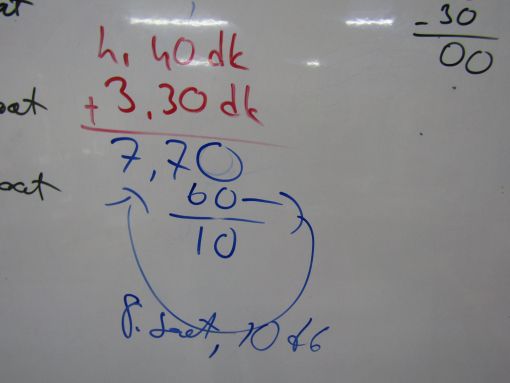 - 30
00
4, 40 dk
+ 3, 30 dk
7, 70
60
10
8. saat, 10 dk